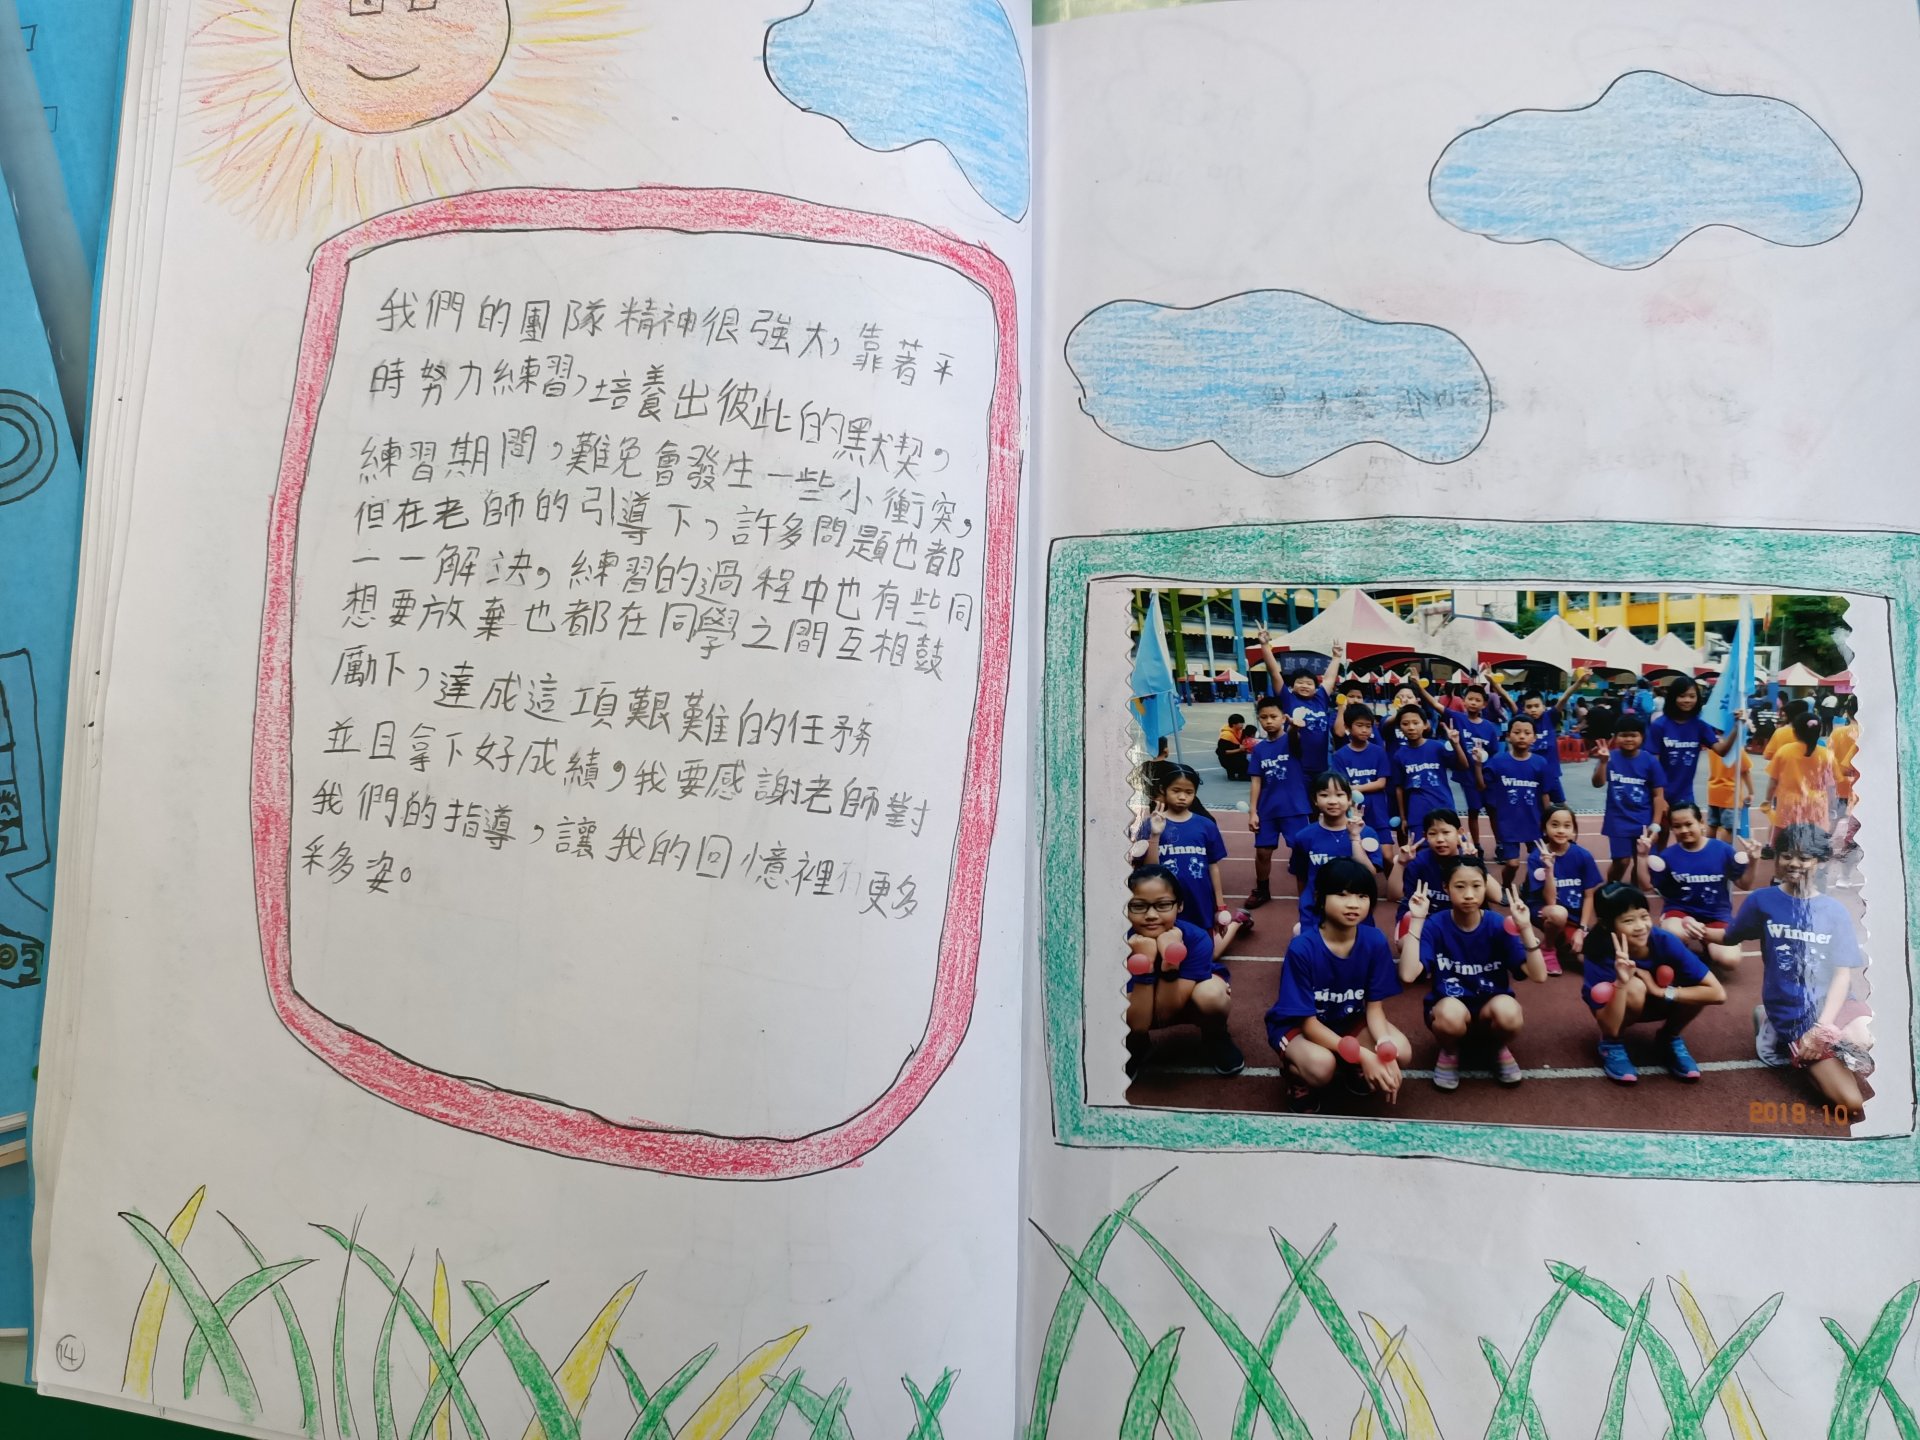 我們的團隊精神很強大，靠著平
時努力練習，培養出彼此的默契，
練習期間，難免會發生一些小衝突，
但在老師的引導下，許多問題也都
一一解決，練習的過程中也有些同
想要放棄也都在同學之間互相鼓
勵下，達成這項艱難的任務
並且拿下好成績，我要感謝老師對
我們的指導，讓我的回憶裡更多
采多姿。
14
Winner
Winner
Winner
Winner
Winner
Winner
Winner
Winner
Winner
Winner
2019.10.